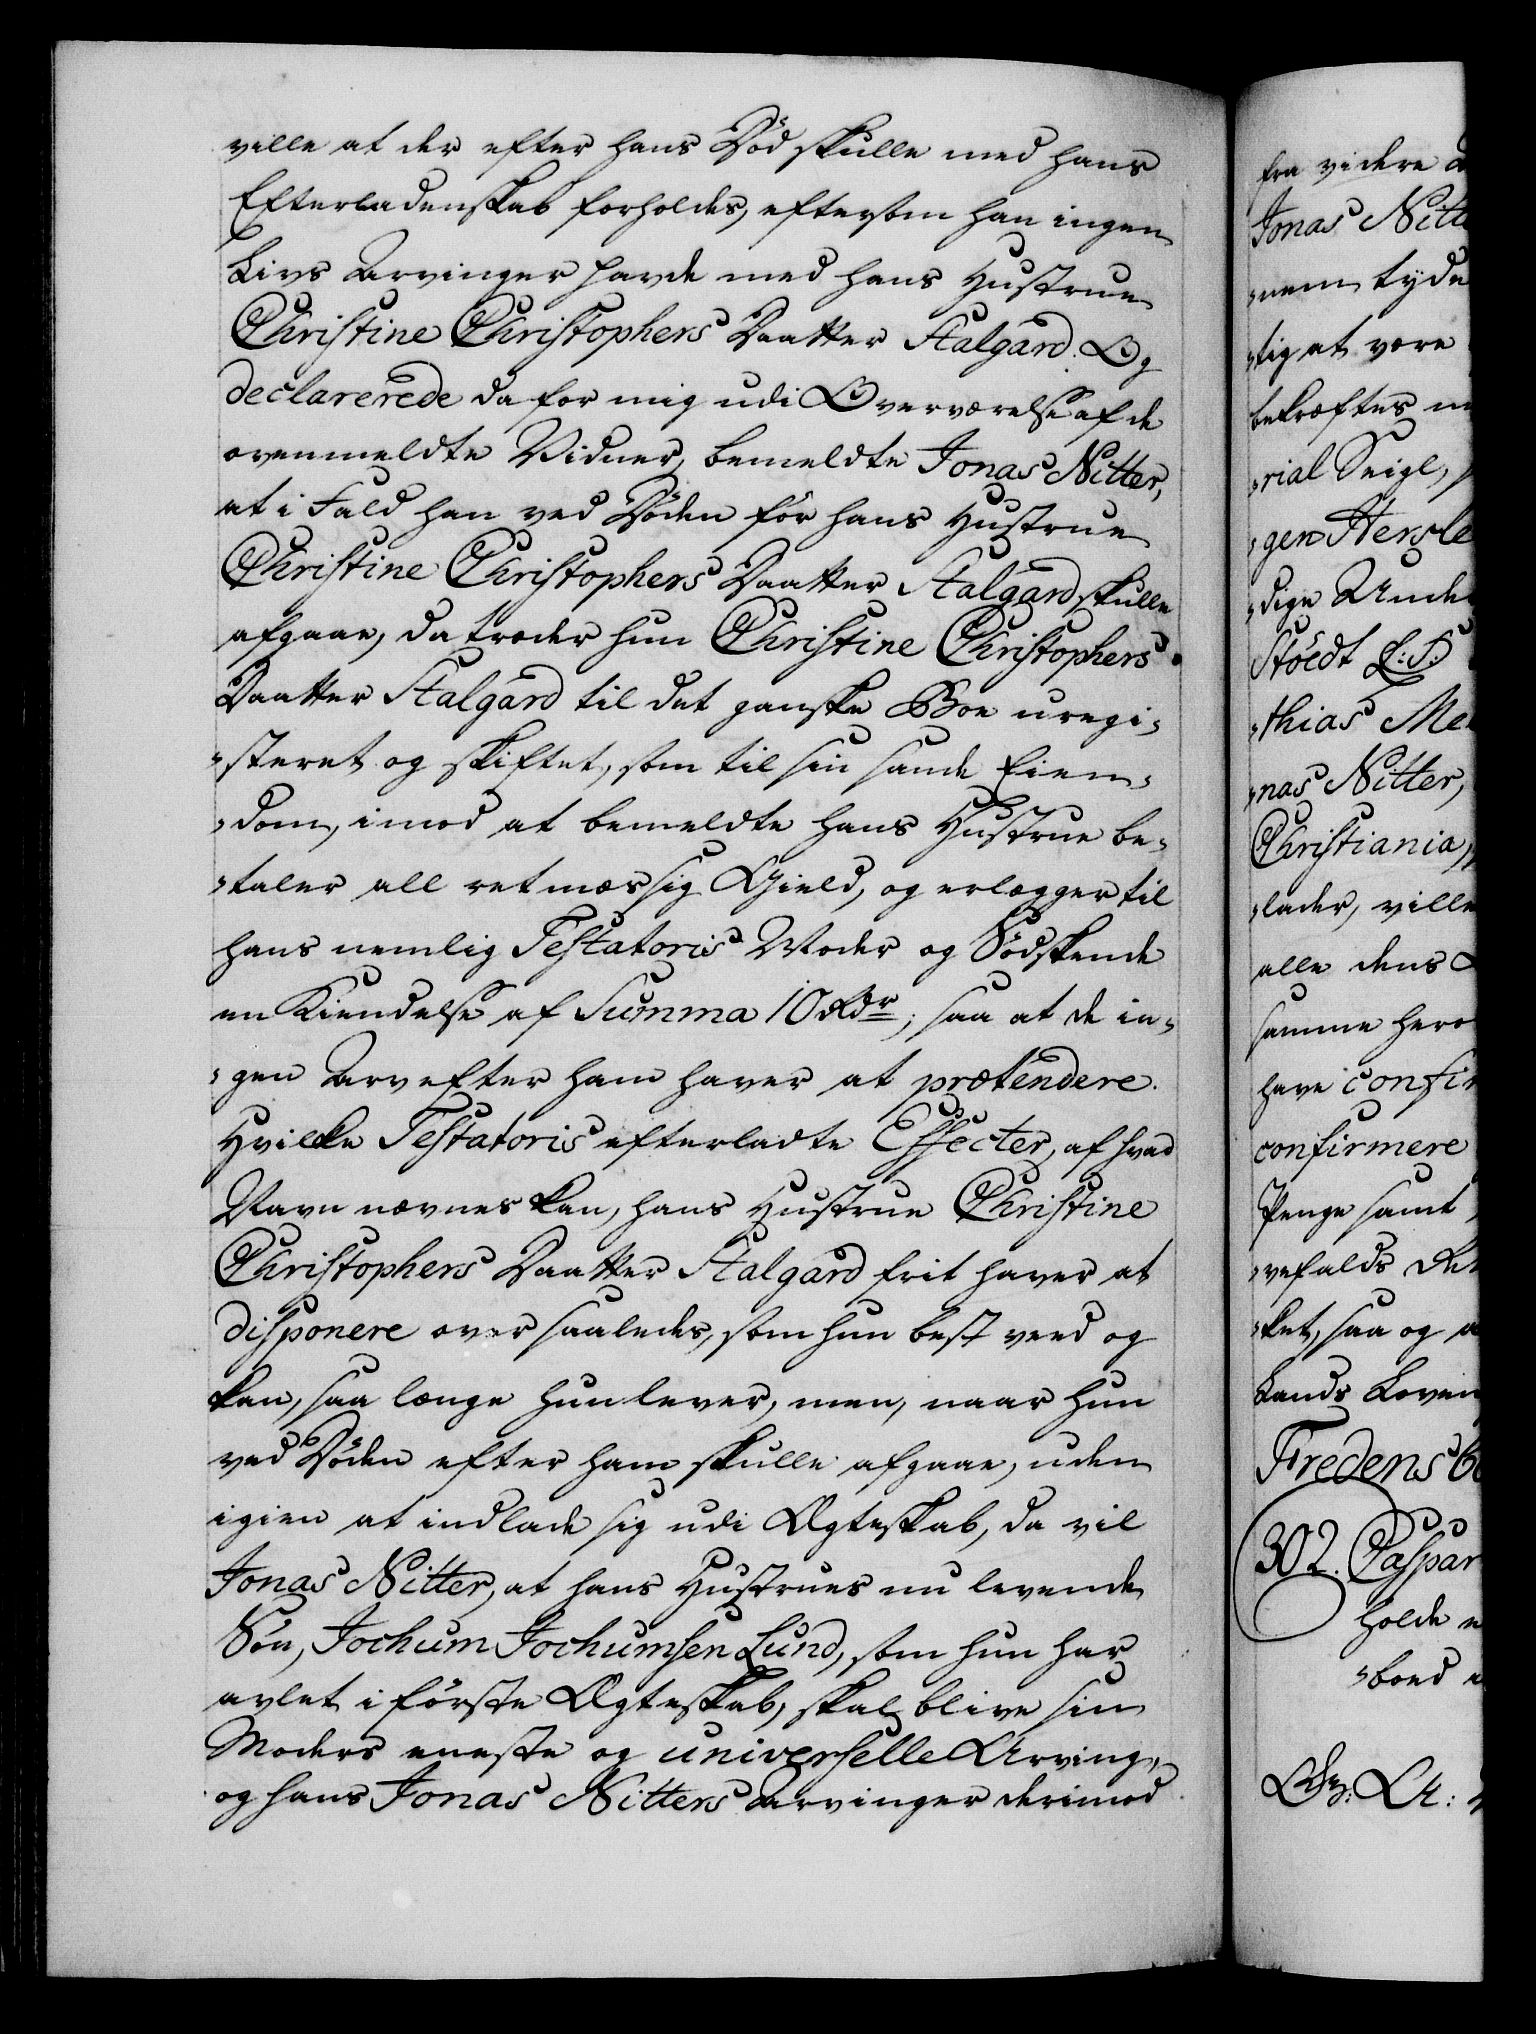 ville at der efter hans Død skulle med hans
Efterladenskab forholdes, eftersom han ingen
Livs Arvinger havde med hans Hustrue
Christine Christophers Daatter Stalgard. Og
declarerede da for mig udi Overværelse af de
ovenmeldte Vidner, bemeldte Jonas Nitter,
at i Fald han ved Døden før hans Hustrue
Christine Christophers Daatter Stalgard skulle
afgaae, da træder hun Christine Christophers
Daatter Stalgard til det ganske Boe uregi-
-steret og skiftet, som til sin sande Eien-
-dom, imod at bemeldte hans Hustrue be-
-taler all retmæssig Gield, og erlægger til
hans nemlig Testatoris Moder og Sødskende
en Kiendelse af Summa 10 Rdr; saa at de in-
-gen Arv efter ham haver at prætendere.
Hvilke Testatoris efterladte Effecter, af hvad
Navn nævnes kan, hans Hustrue Christine
Christophers Daatter Stalgard frit haver at
disponere over saaledes, som hun best veed og
kan, saa længe hun lever, men, naar hun
ved Døden efter ham skulle afgaae, uden
igien at indlade sig udi Ægteskab, da vil
Jonas Nitter, at hans Hustrues nu levende
Søn, Jochum Jochumsen Lund, som hun har
avlet i første Ægteskab, skal blive sin
Moders eneste og universelle Arving,
og hans Jonas Nitters Arvinger derimod
fra videre
Jonas Nitt
-nem tyde
-tig at være
bekræftes
-rial Seigl,
-gen Hersle
-dige Unde
Støedt L: S:
-thias Me
-nas Nitter,
Christiania,
-lader, ville
alle dens
samme hero
have confir
confirmere
Penge samt
-vefalds Ret
-ket, saa og
Lands Loven
Fredensb
302. Caspar
holde
-boed